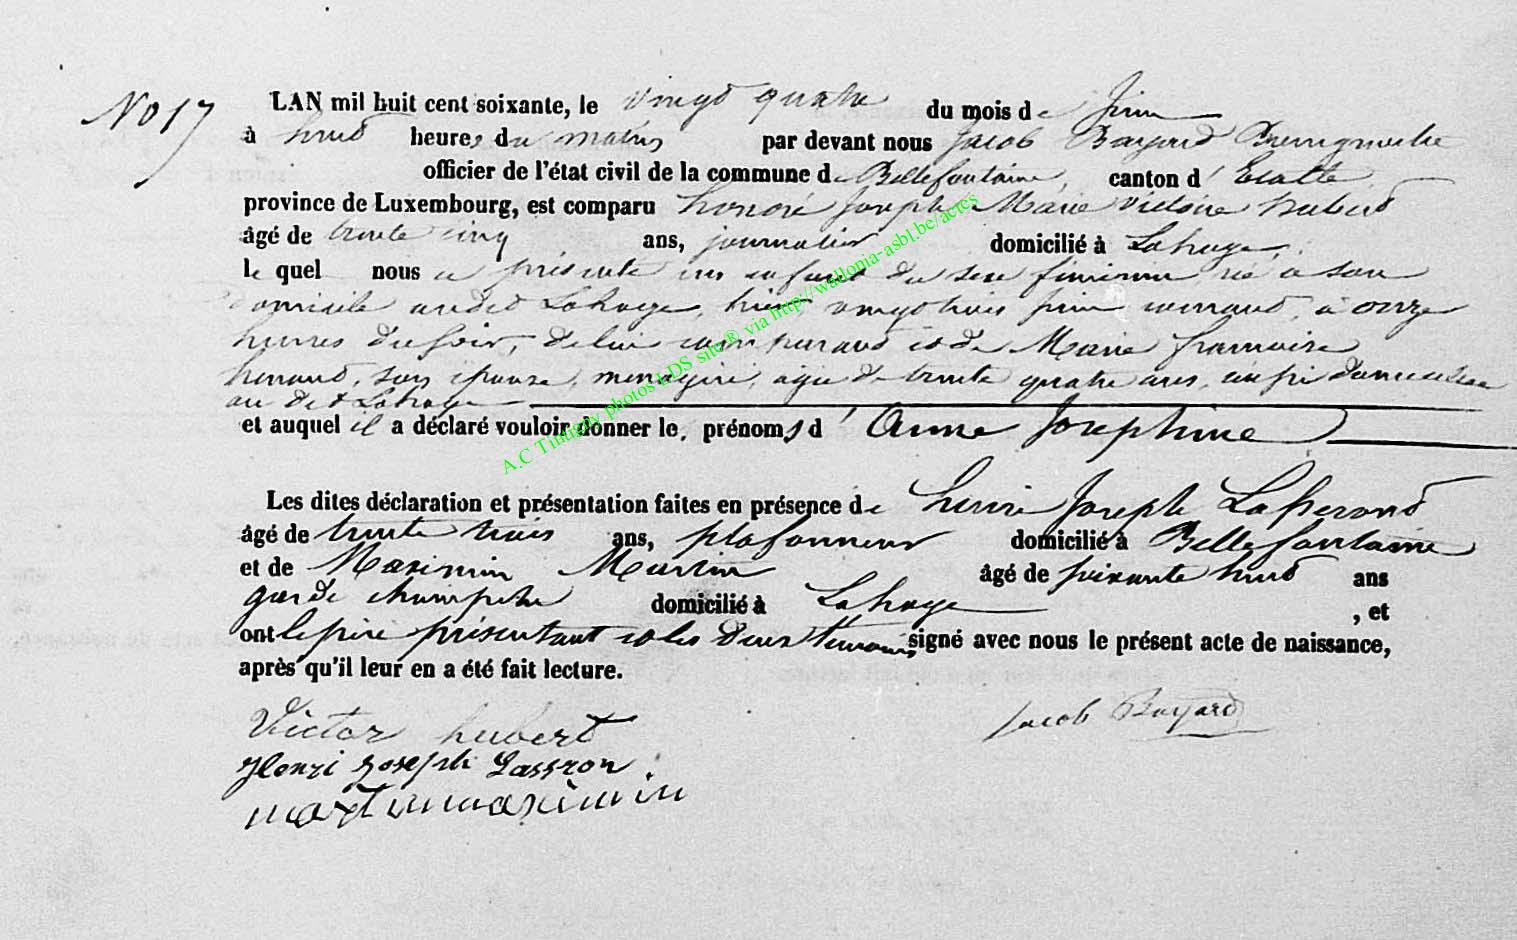 No 17
LAN mil huit cent soixante, le vingt quatre du mois de Juin
à huit heures du matin par devant nous Jacob Bayard Bourgmestre
officier de l'état civil de la commune de Bellefontaine, canton d'Etalle
province de Luxembourg, est comparu honoré Joseph Marie Victoire hubert
âgé de trente cinq ans, journalier domicilié à Lahage,
le quel nous a présenté un enfant du sexe féminin, né à son
domicile audit Lahage, hier, vingt trois juin courant, à onze
heures du soir, de lui comparant et de Marie françoise
henaut, son épouse, ménagère, agée de trente quatre ans, aussi domiciliée
au dit Lahage
et auquel il a déclaré vouloir donner le, prénoms d'Anne Josephine
Les dites déclaration et présentation faites en présence de henri Joseph
âgé de trente trois ans, plafonneur domicilié à Bellefontaine
et de Maximin Martin âgé de soixante huit ans
garde champetre domicilié à Lahage, et
ont le père présentant et les deux témoins signé avec nous le présent acte de naissance,
après qu'il leur en a été fait lecture.
Victor hubert
Jacob Bayard
Henri Joseph Lassron
martin maximin
A.C Tintigny photos LDS site® via http://wallonia-asbl.be/actes